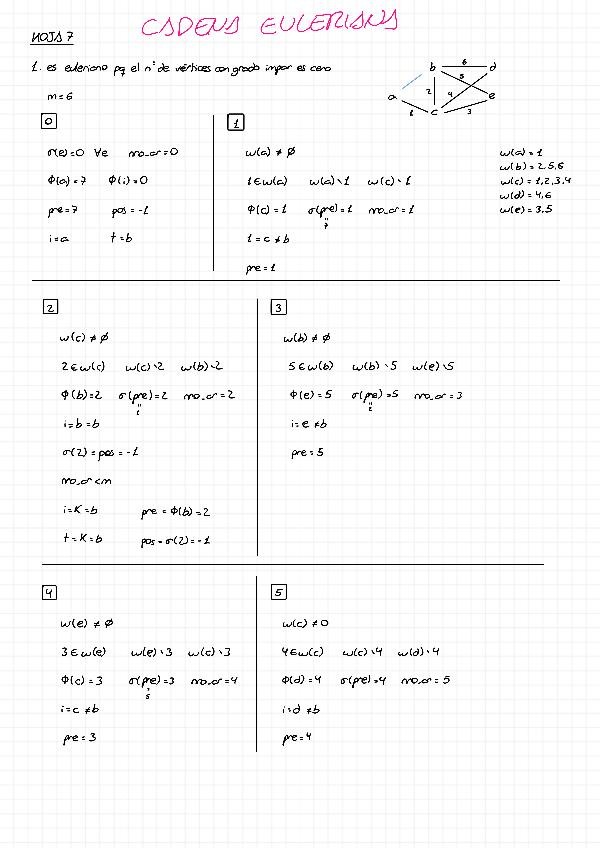 CADENA EULERIANA
HOJA 7
1. es euleriano pq el nº de vértices con grado impar es cero
m = 6
a b c d e
1 2 3 4 5 6
0
σ(e)=0 ∀e no_or=0
Φ(a)=7 Φ(i)=0
pre=7 pos=-1
i=a t=b
1
w(a) ≠ ∅
1∈w(a) w(a)\1 w(c)\1
Φ(c)=1 σ(pre)=1 no_or=1
"
7
i=c ≠b
pre=1
w(a)=1
w(b)=2,5,6
w(c)=1,2,3,4
w(d)=4,6
w(e)=3,5
2
w(c) ≠ ∅
2∈w(c) w(c)\2 w(b)\2
Φ(b)=2 σ(pre)=2 no_or=2
"
1
i=b=b
σ(2)=pos=-1
no_or<m
i=K=b pre=Φ(b)=2
t=K=b pos=σ(2)=-1
3
w(b) ≠ ∅
5∈w(b) w(b)\5 w(e)\5
Φ(e)=5 σ(pre)=5 no_or=3
"
2
i=e ≠b
pre=5
4
w(e) ≠ ∅
3∈w(e) w(e)\3 w(c)\3
Φ(c)=3 σ(pre)=3 no_or=4
"
5
i=c ≠b
pre=3
5
w(c) ≠0
4∈w(c) w(c)\4 w(d)\4
Φ(d)=4 σ(pre)=4 no_or=5
i=d ≠b
pre=4